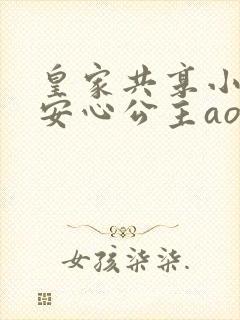 皇家共享小
安心公主ao
女孩柒柒.